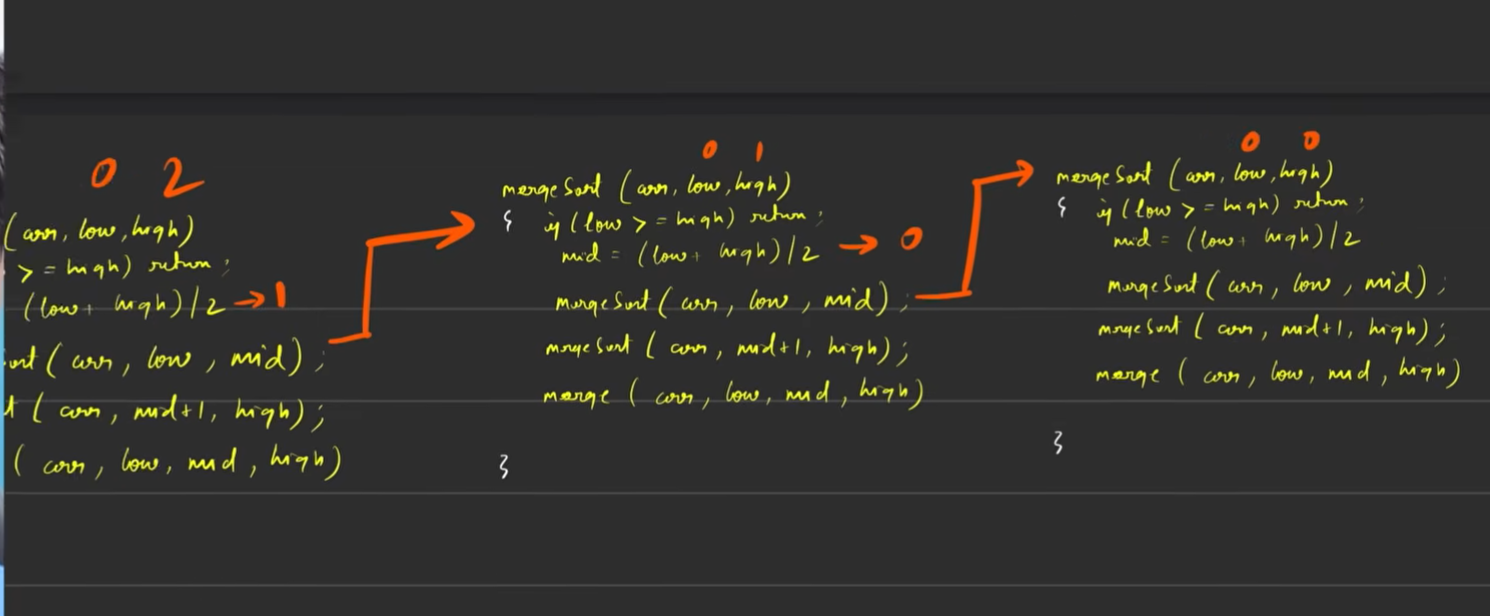 0 2
(arr, low, high)
>= high) return;
(low + high)/2 → 1
ort (arr, low, mid);
t (arr, mid+1, high);
(arr, low, mid, high)
0 1
mergeSort (arr, low, high)
{ if (low >= high) return;
mid = (low + high)/2 → 0
mergeSort (arr, low, mid);
mergeSort (arr, mid+1, high);
merge (arr, low, mid, high)
}
0 0
mergeSort (arr, low, high)
{ if (low >= high) return;
mid = (low + high)/2
mergeSort (arr, low, mid);
mergeSort (arr, mid+1, high);
merge (arr, low, mid, high)
}